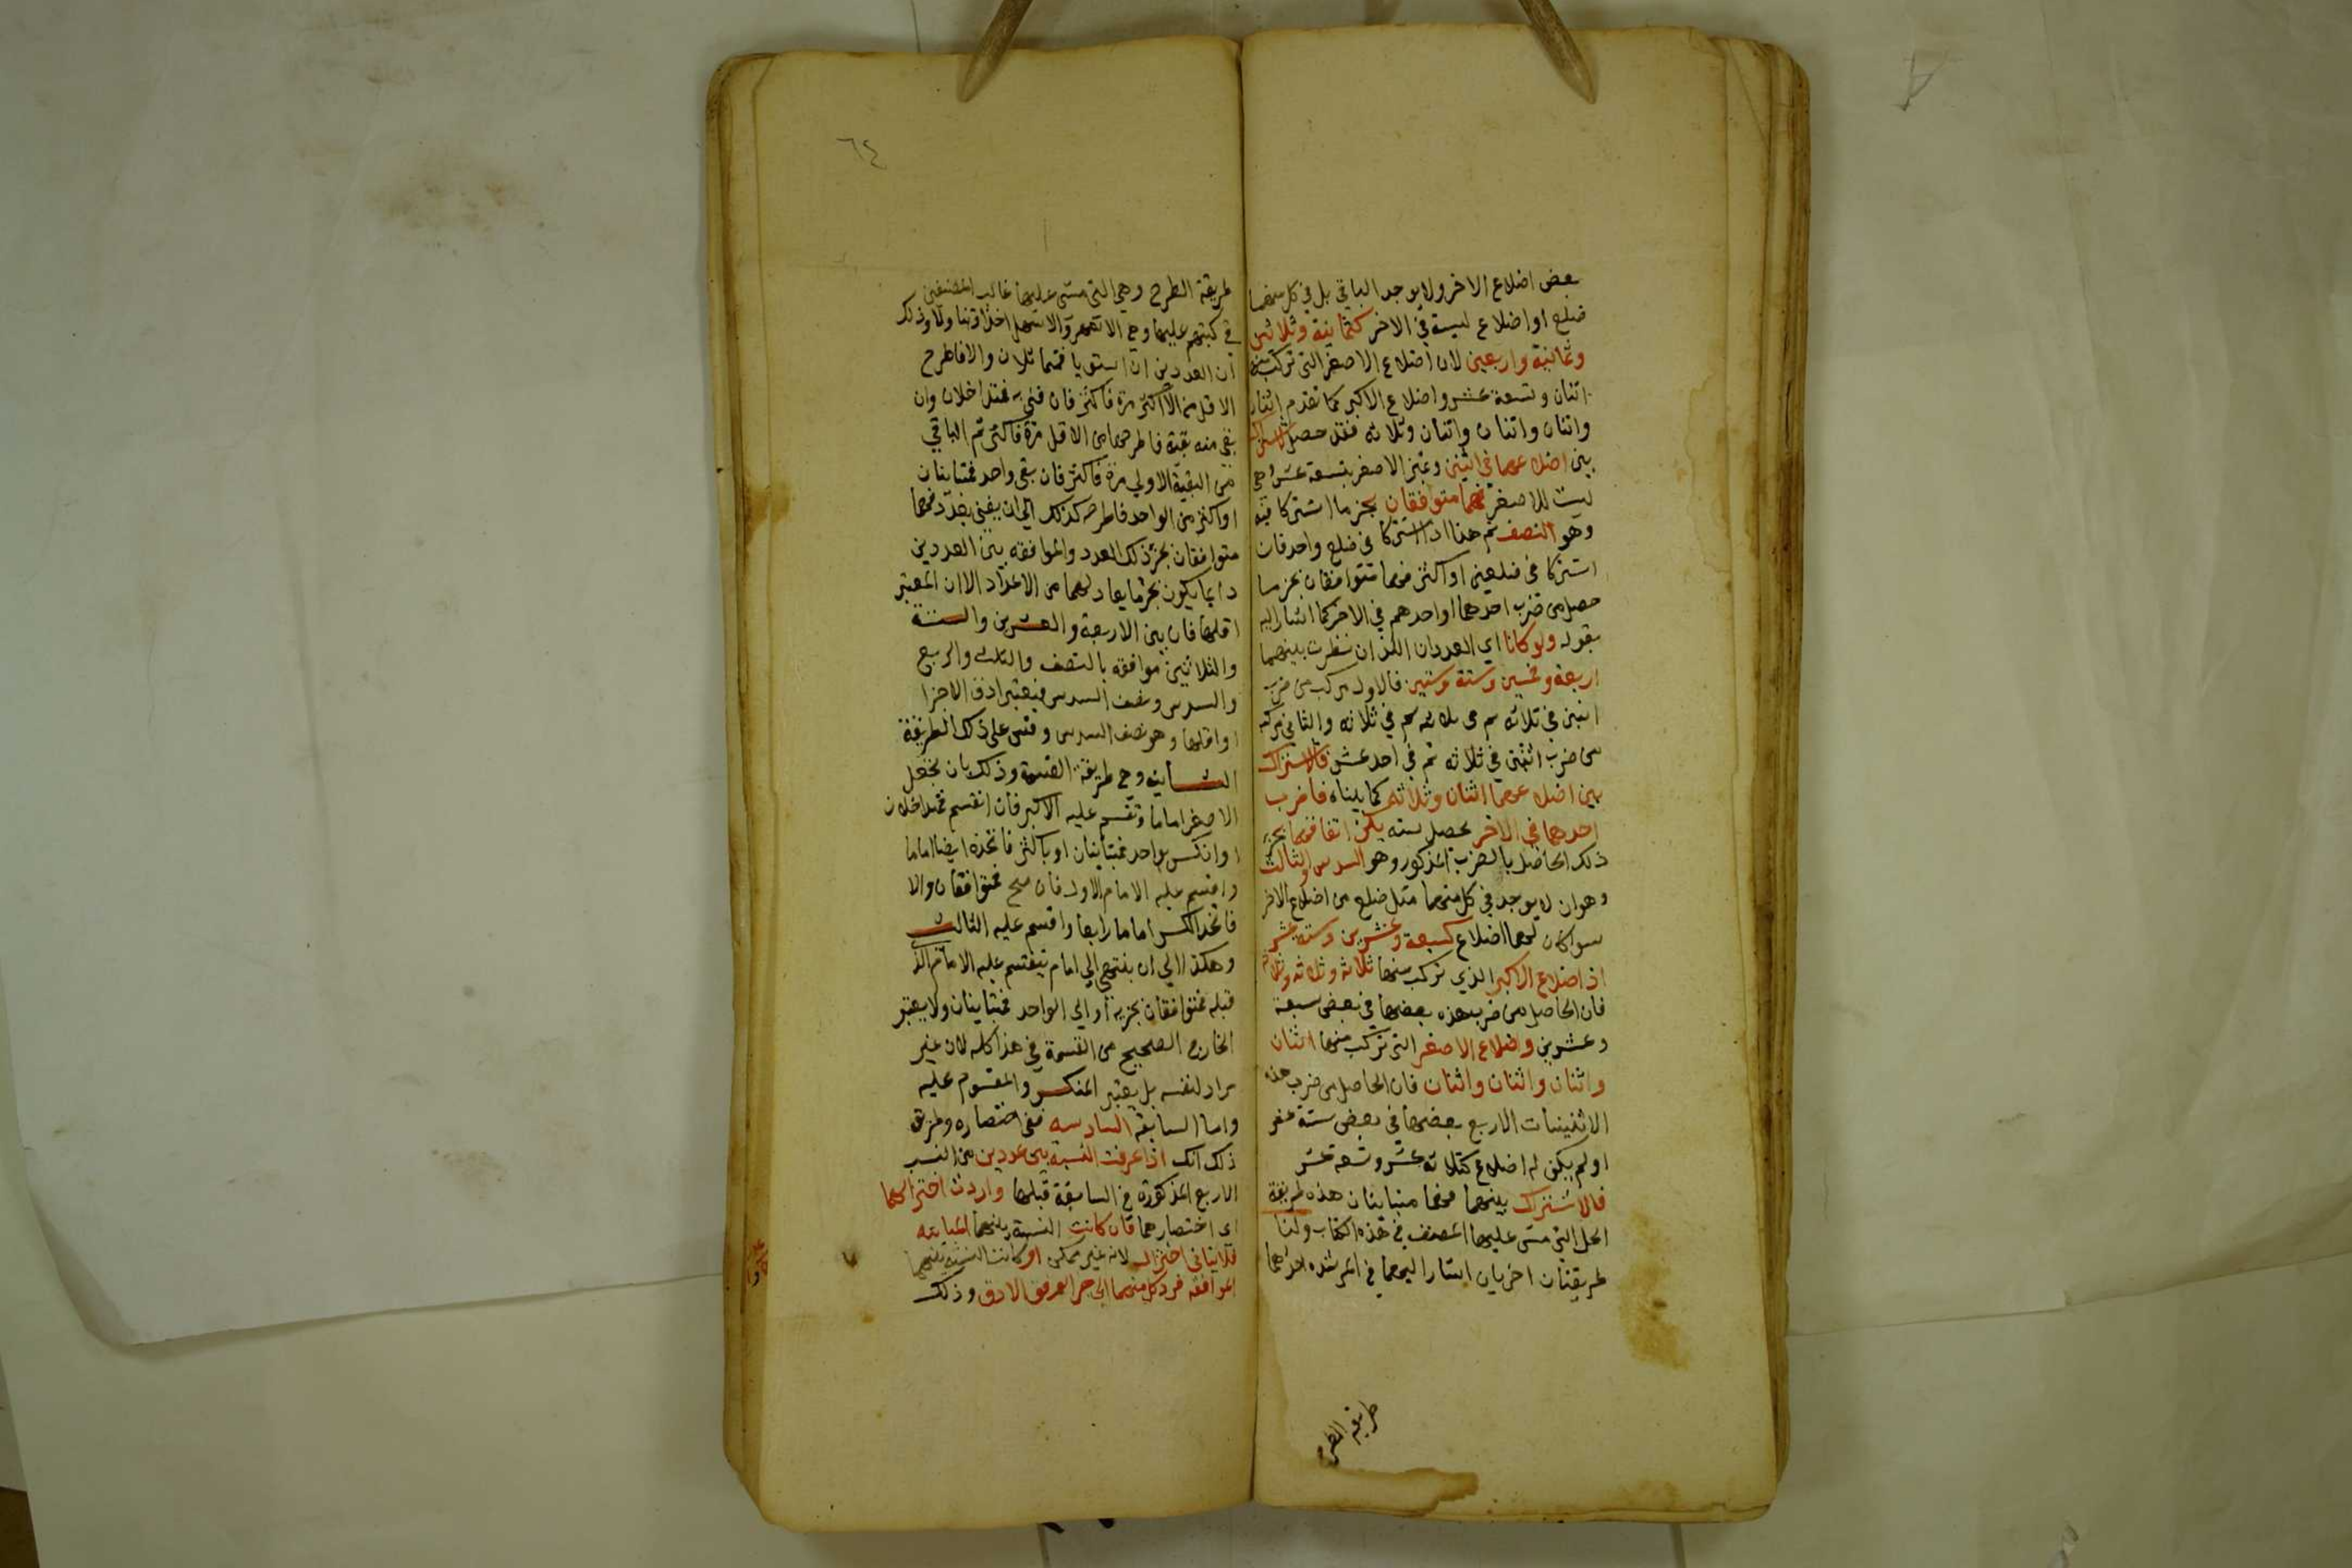 بعض اضلاع الاخر ولا يوجد الباقي بل في كل منهما
ضلع او اضلاع ليست في الاخر كثمانية وثلاثين
وثمانية واربعين لان اضلاع الاصغر التي تركب منه
اثنان وتسعة عشر واضلاع الاكبر كما تقدم اثنان
واثنان واثنان واثنان وثلاثه فقد حصل
بين اضلاعهما في اثنين وتميز الاصغر بتسعة عشر
ليست للاصغر فهما متوافقان بجزء ما اشتركا فيه
وهو النصف ثم هذا اذا اشتركا في ضلع واحد فان
اشتركا في ضلعين او اكثر فهما متوافقان بجزء ما
حصل من ضرب احدهما او احدهم في الاخر كما اشار اليه
بقوله ولو كانا اي العددان اللذان نظرت بينهما
اربعة وخمسين وستة وستين فالاول مركب من ضرب
اثنين في ثلاثه ثم في ثلاثه ثم في ثلاثه والثاني مركب
من ضرب اثنين في ثلاثه ثم في احد عشر فالاشتراك
بين اضلاعهما اثنان وثلاثه كما بيناه فاضرب
احدهما في الاخر يحصل سته يكن اتفاقهما بجزء
ذلك الحاصل بالضرب المذكور وهو السدس والثالث
وهو ان لا يوجد في كل منهما مثل ضلع من اضلاع الاخر
سوا كان لهما اضلاع كسبعة وعشرين وستة عشر
اذ اضلاع الاكبر الذي تركب منها ثلاثة وثلاثه وثلاثه
فان الحاصل من ضرب هذه بعضها في بعض سبعة
وعشرين واضلاع الاصغر التي تركب منها اثنان
واثنان واثنان واثنان فان الحاصل من ضرب هذه
الاثنينات الاربع بعضها في بعض ستة عشر
او لم يكن له اضلاع كثلاثه عشر وتسعة عشر
فالاشتراك بينهما فهما متباينان هذه طريقة
الحل التي مشى عليها المصنف في هذه الكتاب ولنا
طريقتان اخريان اشار اليهما في المرشده احدهما
طريقة الطرح
٦٤
طريقة الطرح وهي التي مشى عليها غالب المصنفين
في كتبهم عليها وهي الاشهر والاسهل اخذا وذلك
ان العددين ان استويا فمتماثلان والا فاطرح
الاقل من الاكثر مرة فاكثر فان فني به فمتداخلان وان
بقي منه بقية فاطرحها من الاقل مرة فاكثر ثم الباقي
من البقية الاولي مرة فاكثر فان بقى واحد فمتباينان
او اكثر من الواحد فاطرحه كذلك الى ان يفنى بعدد فهما
متوافقان بجزء ذلك العدد والموافقه بين العددين
دايما يكون بجزء ما يعادلهما من الاعداد الا ان المعتبر
اقلها فان بين الاربعة والعشرين والستة
والثلاثين موافقه بالنصف والثلث والربع
والسدس ونصف السدس فيعتبر ادق الاجزا
واقلها وهو نصف السدس وقس على ذلك الطريقة
الثانية وهي طريقة القسمة وذلك بان تجعل
الاصغر اماما وتقسم عليه الاكبر فان انقسم فمتداخلان
او انكسر بواحد فمتباينان او باكثر فاتخذه ايضا اماما
واقسم عليه الامام الاول فان صح فمتوافقان والا
فاتخذ الكسر اماما رابعا واقسم عليه الثالث
وهكذا الي ان ينتهي الي امام ينقسم عليه الامام الذي
قبله فمتوافقان بجزيه او الي الواحد فمتباينان ولا يعتبر
الخارج الصحيح من القسمة في هذا كله لان غير
مراد لنفسه بل يعتبر المنكسر والمقسوم عليه
واما السابقة السادسه ففي اختصاره وطريق
ذلك انك اذا عرفت النسبة بين عددين من النسب
الاربع المذكورة في السابقة قبلها واردت اختزالهما
اي اختصارهما فان كانت النسبة بينهما المباينه
فلا يتاتى اختزال لانه غير ممكن او كانت النسبة بينهما
الموافقة فرد كل منهما الى جزء الوفق الادق وذلك